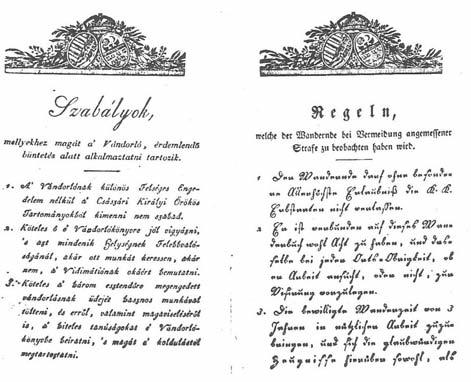 Szabályok,
mellyekhez magát a' Vándorló, érdemlendő
büntetés alatt alkalmaztatni tartozik.
1. A' Vándorlónak különös Felséges Enge-
delem nélkül a' Császári Királyi Örökös
Tartományokból kimenni nem szabad.
2. Köteles ő é Vándorlókönyvre jól vigyázni,
's azt mindenik Helységnek Felebbvaló-
ságánál, akár ott munkát keressen, akár
nem, a' Vidimátiónak okáért bemutatni.
3. Köteles a' három esztendőre megengedett
vándorlásnak üdejét hasznos munkával
tölteni, és erről, valamint magaviseletéről
is, a' hiteles tanúságokat é Vándorló-
könyvbe béiratni, 's magát a' koldulástól
megtartóztatni.
Regeln,
welche der Wandernde bei Vermeidung angemessener
Strafe zu beobachten haben wird.
1. Der Wandernde darf ohne besonde-
re Allerhöchste Erlaubniß die K. K.
Erbstaaten nicht verlassen.
2. Er ist verbunden auf dieses Wan-
derbuch wohl Acht zu haben, und das-
selbe bei jeder Orts-Obrigkeit, ob
er Arbeit ansucht, oder nicht, zur
Vidirung vorzulegen.
3. Die bewilligte Wanderzeit von 3
Jahren in nützlicher Arbeit zuzu-
bringen, und sich die glaubwürdigen
Zeugnisse hierüber sowohl, als